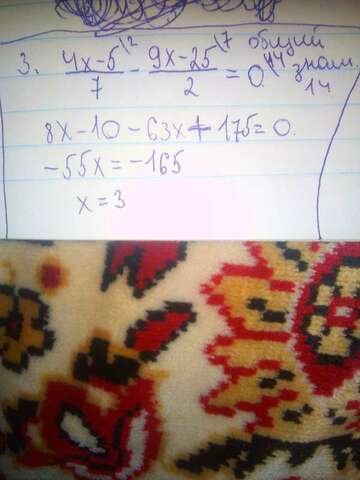 3. (4x-5)\2/7 - (9x-25)\7/2 = 0 \14 общий знам. 14
8x-10-63x+175=0.
-55x=-165
x=3